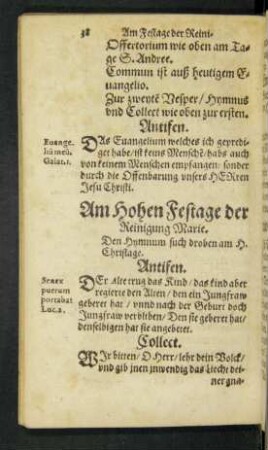 38 Am Festage der Reini-
Offertorium wie oben am Ta-
ge S. Andree.
Commun ist auß heutigem E-
uangelio.
Zur zweyte Vesper / Hymnus
vnd Collect wie oben zur ersten.
Antifen.
Euange-
liū meū.
Galat.1.
DAs Euangelium welches ich gepredi-
get habe / ist keins Menschē / habs auch
von keinem Menschen empfangen / sonder
durch die Offenbarung vnsers HERren
Jesu Christi.
Am Hohen Festage der
Reinigung Marie.
Den Hymnum such droben am H.
Christage.
Antifen.
Senex
puerum
portabat
Luc.2.
DEr alte trug das Kind / das kind aber
regierte den Alten / den ein Jungfraw
geberet hat / vnnd nach der Geburt doch
Jungfraw verblieben / Den sie geberet hat /
denselbigen hat sie angebetet.
Collect.
WIr bitten / O Herr / lehr dein Volck /
vnd gib jnen jnwendig das Liecht dei-
ner gna-